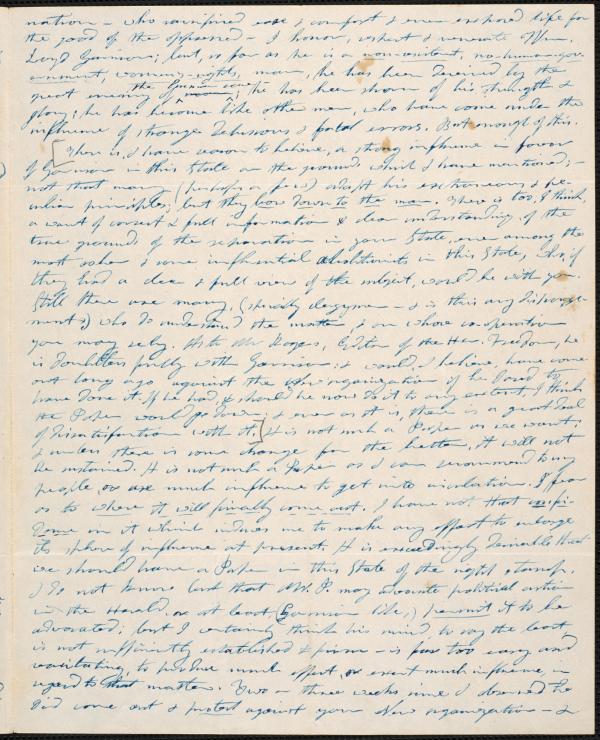 nation – who sacrificed ease & comfort & even exposed life for
the good of the oppressed – I honor, respect & venerate Wm.
Loyd Garrison; but, so far as he is a non-resistent, no-human-gov-
ernment, womans-rights, man, he has been deceived by the
great enemy of the human race; he has been shorn of his strength &
glory; he has become like other men, who have come under the
influence of strange delusions & fatal errors. But enough of this.
[There is, I have reason to believe, a strong influence in favor
of Garrison in this State on the ground which I have mentioned; –
not that many (perhaps a few) adopt his extraneous & pe-
culiar principles; but they bow down to the man. There is too, I think,
a want of correct & full information & clear understanding of the
true grounds of the separation in your State, even among the
most & some influential abolitionists in this State, who, if
they had a clear & full view of the subject, would be with you.
Still there are many, (chiefly clergymen – & is this any disparage-
ment?) who do understand the matter & on whose cooperation
you may rely. As to Mr. Rogers, Editor of the Her. Freedom, he
is doubtless fully with Garrison; & would, I believe, have come
out long ago against the new organization if he dared to
have done it. If he had, & should he now do it to any extent, I think
the Paper would go down; & even as it is, there is a great deal
of dissatisfaction with it.] It is not such a Paper as we want;
& unless there is some change for the better, it will not
be sustained. It is not such a Paper as I can recommend to my
people, or use much influence to get into circulation. I fear
as to where it will finally come out. I have not that confi-
dence in it which induces me to make any effort to enlarge
its sphere of influence at present. It is exceedingly desirable that
we should have a Paper in this State of the right stamp.
I do not know but that Mr. P. may advocate political action
in the Herald, or at least, (Garrison like,) permit it to be
advocated; but I certainly think his mind to say the least
is not sufficiently established & firm – is far too easy and
vacillating, to produce much effect, or exert much influence, in
regard to that matter. Two or three weeks since I observed he
did come out & protest against your New organization – &